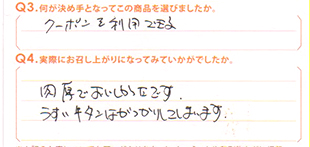 Q3.何が決め手となってこの商品を選びましたか。
クーポンを利用できる
Q4.実際にお召し上がりになってみていかがでしたか。
肉厚でおいしかったです。
うすい牛タンはがっかりしてしまいます。